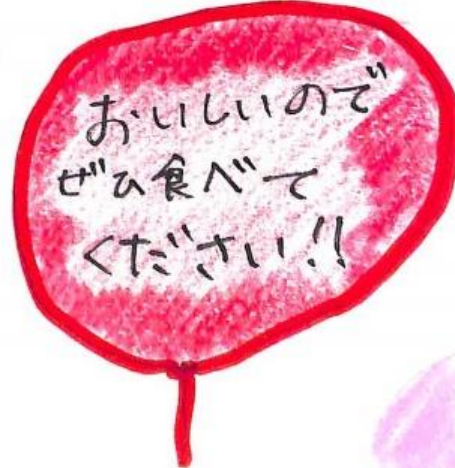 おいしいので
ぜひ食べて
ください!!